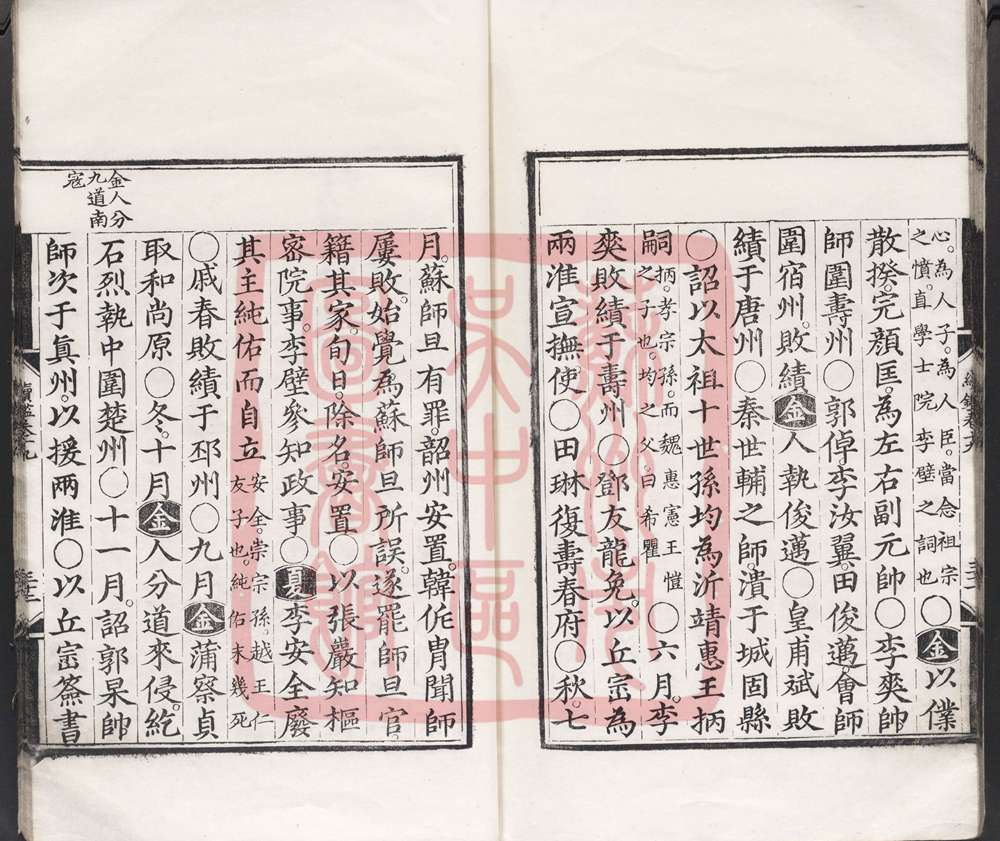 心。為人子。為人臣。當念祖宗
之憤。直學士院李壁之詞也〇金以僕
散揆。完顏匡。為左右副元帥〇李爽帥
師圍壽州〇郭倬李汝翼。田俊邁。會師
圍宿州。敗績。金人執俊邁〇皇甫斌敗
績于唐州〇秦世輔之師。潰于城固縣
〇詔以太祖十世孫均為沂靖惠王抦
嗣抦。孝宗孫。而魏惠憲王愷
之子也。均之父。曰希瞿〇六月。李
爽敗績于壽州〇鄧友龍免。以丘崈為
兩淮宣撫使〇田琳復壽春府〇秋。七
月。蘇師旦有罪。韶州安置。韓侂胄聞師
屢敗。始覺為蘇師旦所誤。遂罷師旦官。
籍其家。旬日。除名。安置〇以張巖知樞
密院事。李壁參知政事〇夏李安全廢
其主純佑而自立安全。崇宗孫。越王仁
友子也。純佑未幾死
〇戚春敗績于邳州〇九月金蒲察貞
取和尚原〇冬。十月金人分道來侵。紇
石烈執中圍楚州〇十一月。詔郭杲帥
師次于真州。以援兩淮〇以丘崈簽書
金人分
九道南
寇
蘇州市
吳中區
圖書館